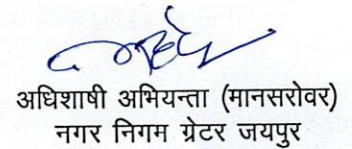 अधिशाषी अभियन्ता (मानसरोवर)
नगर निगम ग्रेटर जयपुर